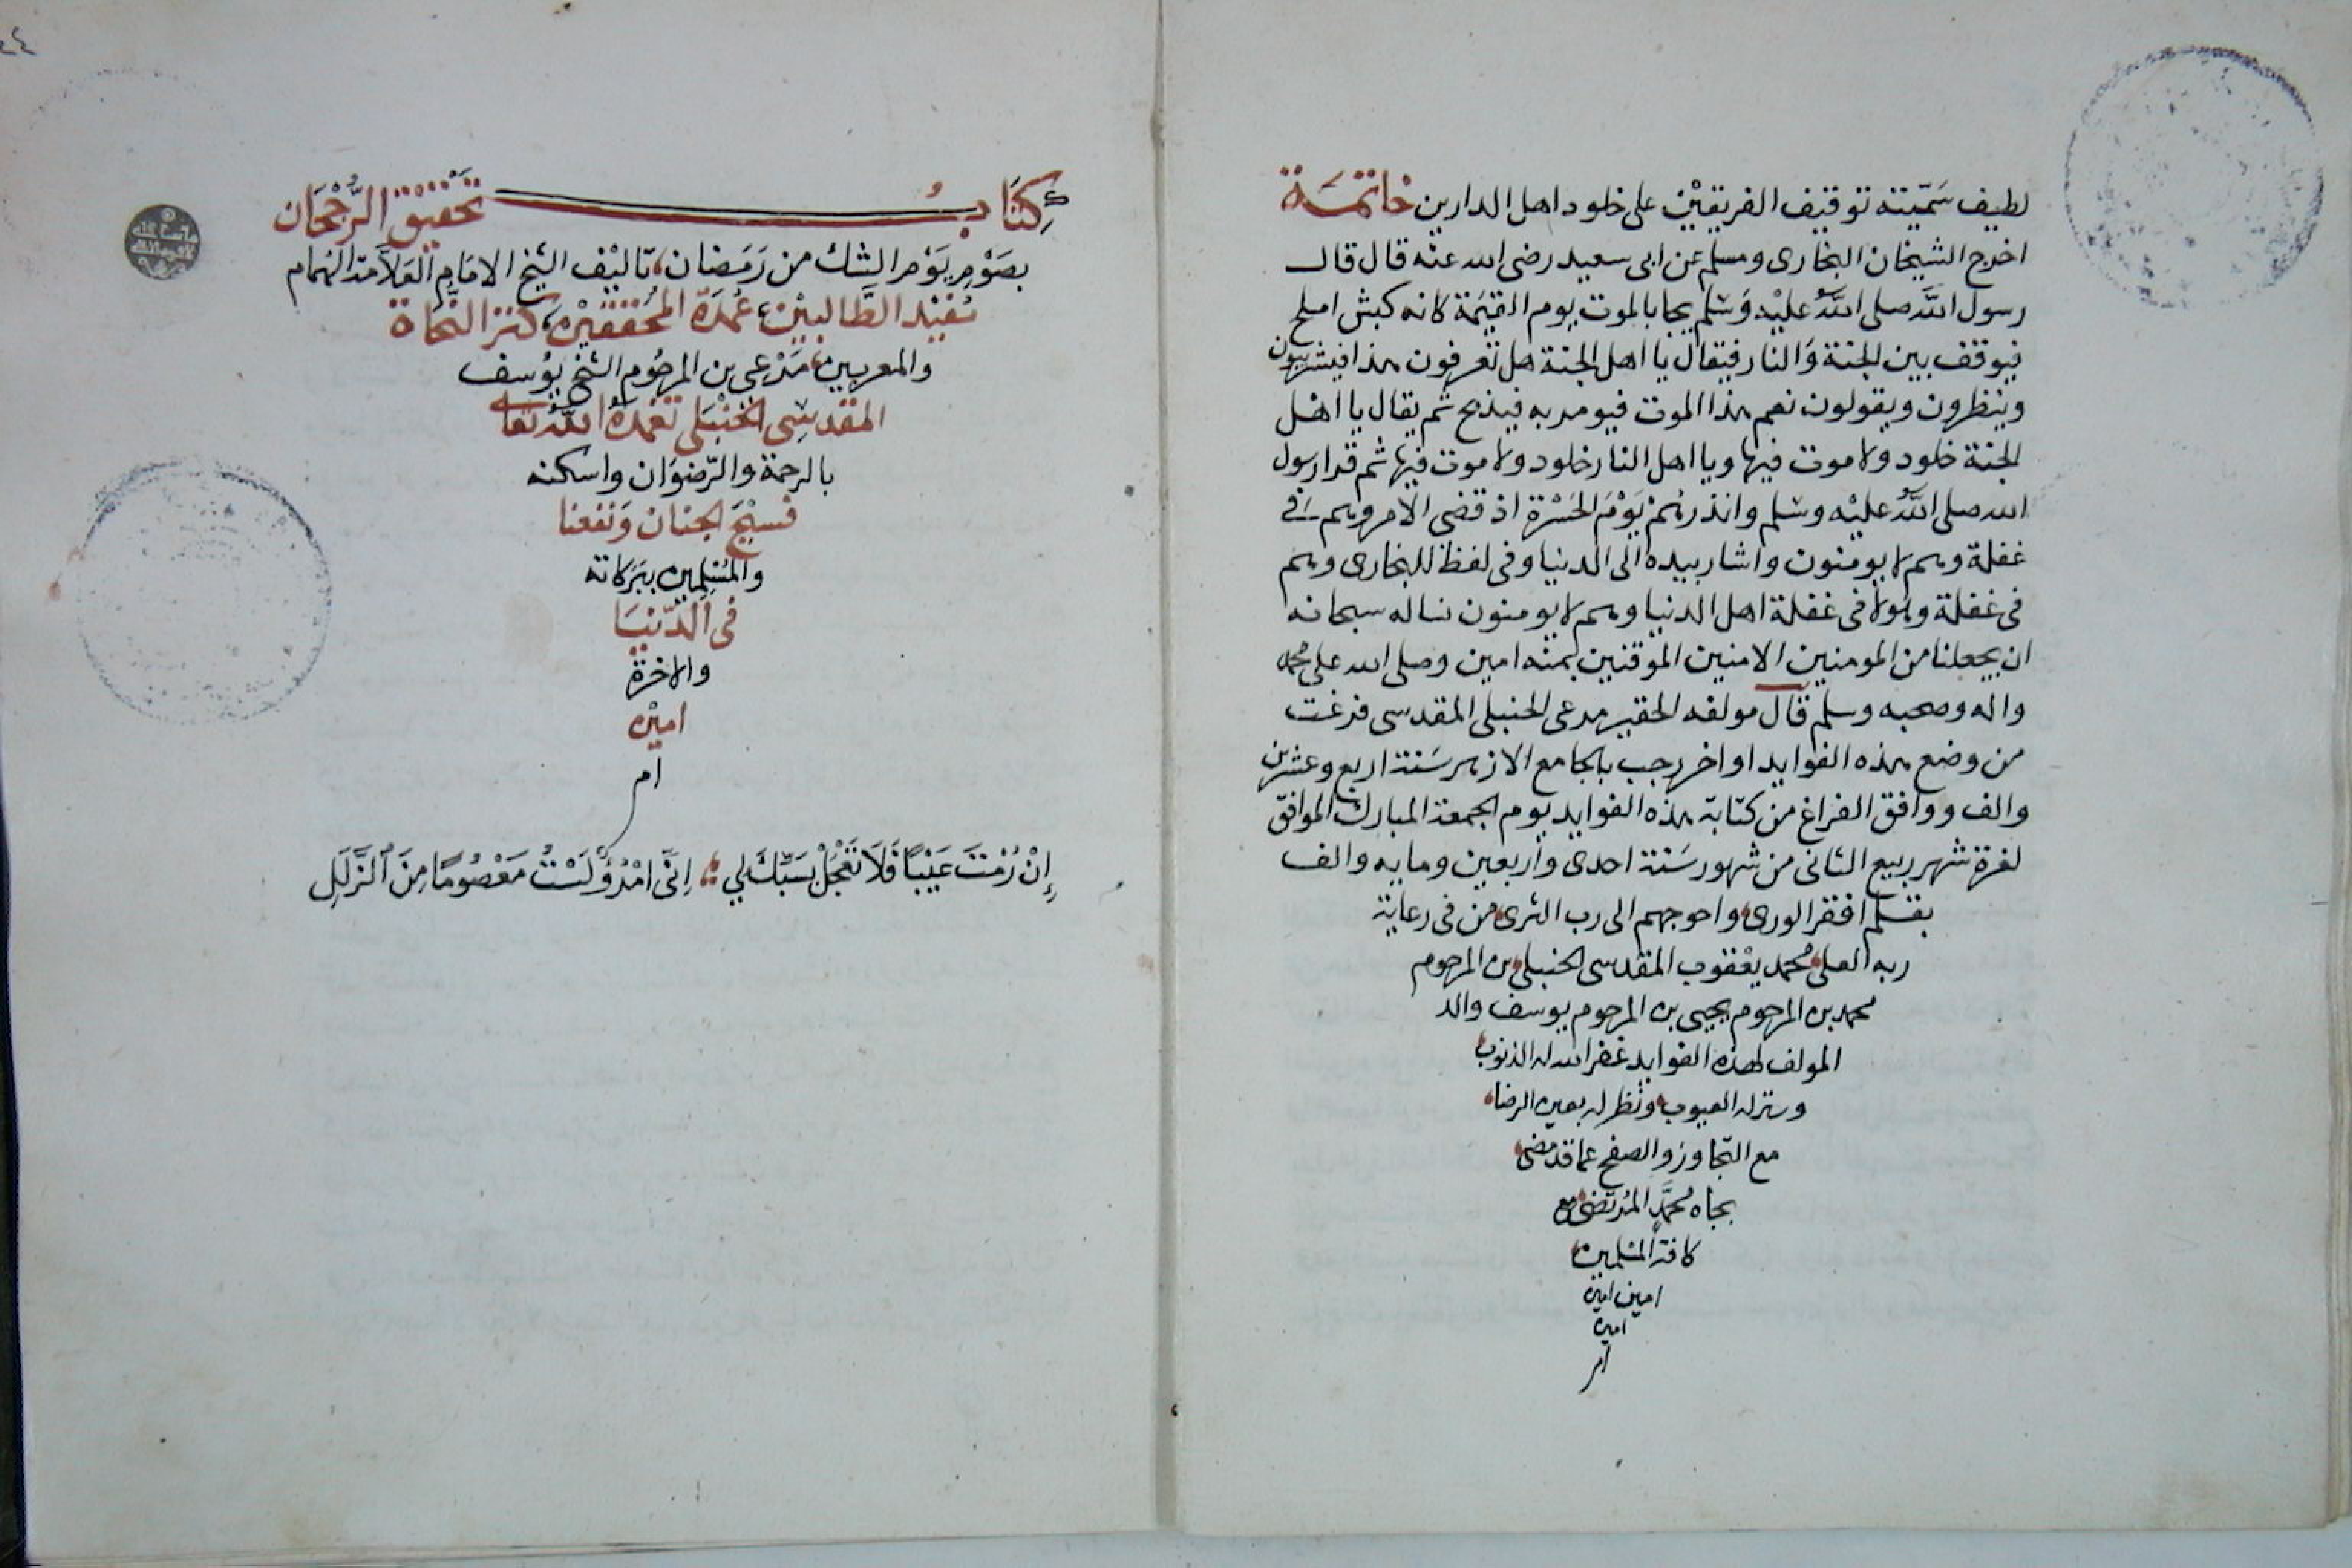 لطيف سَمّيته توقيف الفريقيْن على خلود اهل الدارين خاتمَة
اخرج الشيخان البخارى ومسلم عن ابى سعيد رضى الله عنه قال قال
رسول اللَّه صلى اللَّهُ عليْه وَسَلم يجا بالموت يوم القيٰمَة كانه كبش املح
فيوقف بين الجنة وَالنار فيقال يا اهل الجنة هل تعرفون هذا فيشربيون
وينظرون ويقولون نعم هذا الموت فيومر به فيذبح ثم يقال يا اهل
الجنة خلود ولا موت فيها ويا اهل النار خلود ولا موت فيها ثم قرا رسول
الله صلى اللَّهُ عليْه وسَلم وانذرهُمْ يَوْمَ الحَسْرَة اذ قضى الامر وهم فى
غفلة وهم لا يومنون واشار بيده الى الدنيا وفى لفظ للبخارى وهم
فى غفلة وهَولا فى غفلة اهل الدنيا وهم لا يومنون نساله سبحانه
ان يجعلنا من المومنين الامنين الموقنين بمنه امين وصلى الله على محمد
واله وصحبه وسلم قال مولفه الحقير مرعى الحنبلى المقدسى فرغت
من وضع هذه الفوايد اواخر رجب بالجامع الازهر سَنة اربع وعشرين
والف ووافق الفراغ من كتابة هذه الفوايد يوم الجمعة المبارك الموافق
لغرة شهر ربيع الثانى من شهور سَنة احدى واربعين ومايه والف
بقلم افقر الورى، واحوجهم الى رب الثرى، من فى رعاية
ربه العلى، محمد يعْقوب المقدسى الحنبلى، بن المرحوم
محمد بن المرحوم يحيى بن المرحوم يوسف والد
المولف لهذه الفوايد غفر الله له الذنوب،
وستر له العيوب، ونظر له بعين الرضا،
مع التجاوز والصفح عما قد مضى،
بجاه محمَّد المرتضى، مع
كافة المسْلمين،
امين امين
امين
ام
كِتَابُ تَحْقيْق الرُّجْحَان
بصَوْمِ يَوْمِ الشك من رَمَضان، تاليْف الشيخ الامَامِ العَلاَّمة الهمام
مُفيْد الطَّالبيْن، عُمدَة المُحَققيْن، كنز النُّحَاة
والمعربين، مَرْعِي بن المرحُوم الشيخ يوُسف
المقدسِى الحَنْبَلى تغمدَهُ اللَّهُ تعالى
بالرحمة والرّضوَان واسكنه
فسيْحَ الجنان وَنفعنا
والمُسْلِمين ببَرَكاته
فى الدّنيَا
والاخرة
اميْن
ام
إِنْ رُمْتَ عَيْبًا فَلَا تَعْجَلْ بسَبِّكَ لِي ؛ اِنِّى امْرُؤٌ لَسْتُ مَعْصُومًا مِنَ الزَّلَلِ